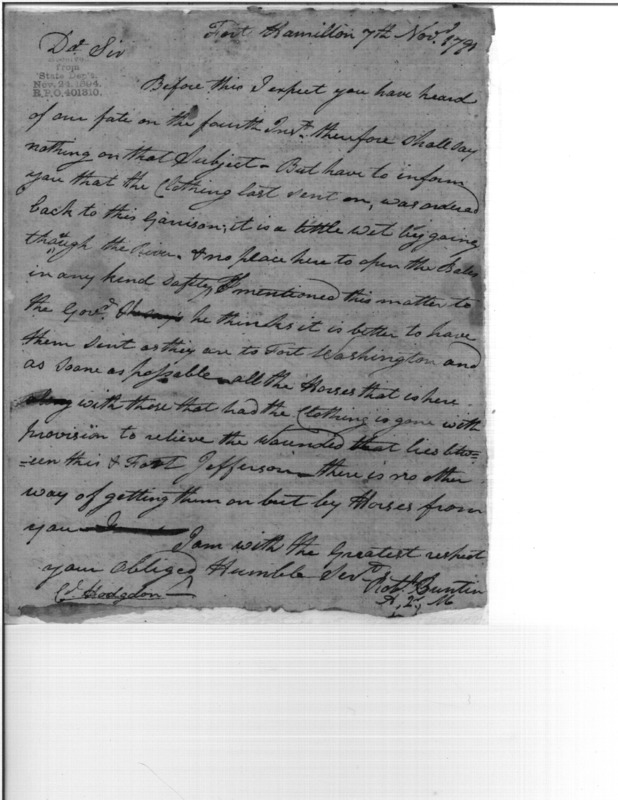 Fort Hamilton 7th Novr. 1791
Dr. Sir
from
State Dept.
Nov. 24, 1894.
R.P.O. 401310.
Before this I expect you have heard
of our fate on the fourth Inst. therefore shall say
nothing on that Subject - But have to inform
you that the Clothing last sent on, was ordered
back to this Garrison; it is a little Wet by going
through the River & no place here to open the Bales
in any kind Safety, I mentioned this matter to
the Govr. he thinks it is better to have
them sent as they are to Fort Washington and
as soone as possable - all the Horses that is here
along with those that had the Clothing is gone with
provision to relieve the Wounded that lies btw=
=een this & Fort Jefferson - there is no other
way of getting them on but by Horses from
you
I am with the Greatest respect
your Obliged Humble Servt.
Robt. Buntin
A, Q, M
Hodgdon